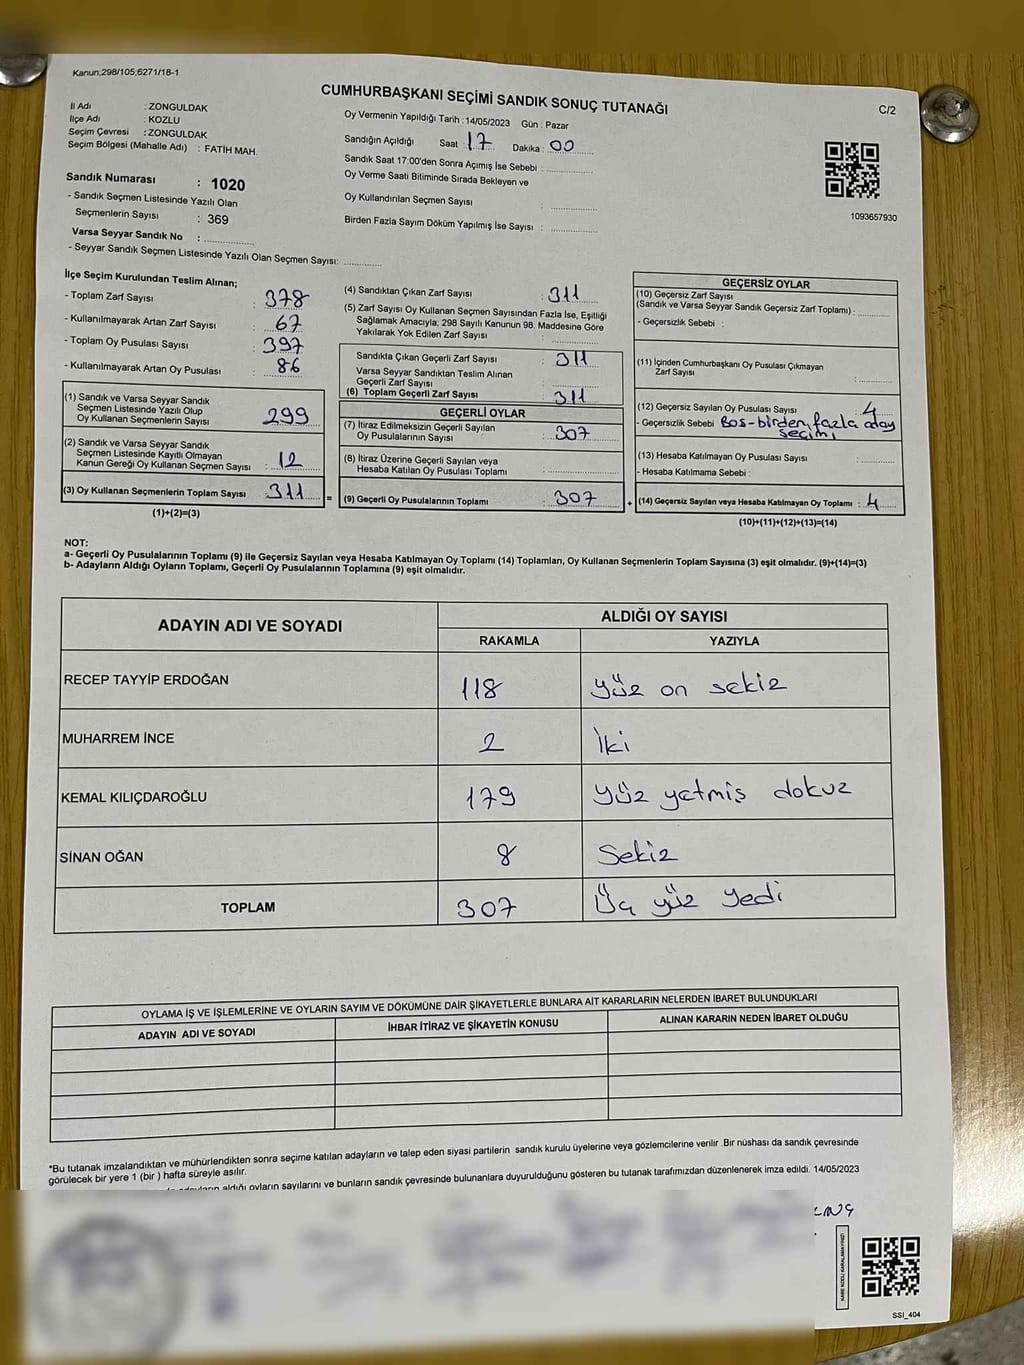 Kanun;298/105;6271/18-1
CUMHURBAŞKANI SEÇİMİ SANDIK SONUÇ TUTANAĞI
C/2
İl Adı : ZONGULDAK
İlçe Adı : KOZLU
Seçim Çevresi : ZONGULDAK
Seçim Bölgesi (Mahalle Adı) : FATİH MAH.
Sandık Numarası : 1020
- Sandık Seçmen Listesinde Yazılı Olan
Seçmenlerin Sayısı : 369
Varsa Seyyar Sandık No :
- Seyyar Sandık Seçmen Listesinde Yazılı Olan Seçmen Sayısı:
Oy Vermenin Yapıldığı Tarih :14/05/2023 Gün : Pazar
Sandığın Açıldığı Saat : 17 Dakika : 00
Sandık Saat 17:00'den Sonra Açımış İse Sebebi :
Oy Verme Saati Bitiminde Sırada Bekleyen ve
Oy Kullandırılan Seçmen Sayısı :
Birden Fazla Sayım Döküm Yapılmış İse Sayısı :
1093657930
İlçe Seçim Kurulundan Teslim Alınan;
- Toplam Zarf Sayısı : 378
- Kullanılmayarak Artan Zarf Sayısı : 67
- Toplam Oy Pusulası Sayısı : 397
- Kullanılmayarak Artan Oy Pusulası : 86
(1) Sandık ve Varsa Seyyar Sandık
Seçmen Listesinde Yazılı Olup
Oy Kullanan Seçmenlerin Sayısı : 299
(2) Sandık ve Varsa Seyyar Sandık
Seçmen Listesinde Kayıtlı Olmayan
Kanun Gereği Oy Kullanan Seçmen Sayısı : 12
(3) Oy Kullanan Seçmenlerin Toplam Sayısı : 311
(1)+(2)=(3)
=
(4) Sandıktan Çıkan Zarf Sayısı : 311
(5) Zarf Sayısı Oy Kullanan Seçmen Sayısından Fazla İse, Eşitliği
Sağlamak Amacıyla; 298 Sayılı Kanunun 98. Maddesine Göre
Yakılarak Yok Edilen Zarf Sayısı :
Sandıkta Çıkan Geçerli Zarf Sayısı : 311
Varsa Seyyar Sandıktan Teslim Alınan
Geçerli Zarf Sayısı :
(6) Toplam Geçerli Zarf Sayısı : 311
GEÇERLİ OYLAR
(7) İtiraz Edilmeksizin Geçerli Sayılan
Oy Pusulalarının Sayısı : 307
(8) İtiraz Üzerine Geçerli Sayılan veya
Hesaba Katılan Oy Pusulası Toplamı :
(9) Geçerli Oy Pusulalarının Toplamı : 307
+
GEÇERSİZ OYLAR
(10) Geçersiz Zarf Sayısı
(Sandık ve Varsa Seyyar Sandık Geçersiz Zarf Toplamı) :
- Geçersizlik Sebebi :
(11) İçinden Cumhurbaşkanı Oy Pusulası Çıkmayan
Zarf Sayısı :
(12) Geçersiz Sayılan Oy Pusulası Sayısı : 4
- Geçersizlik Sebebi Boş-birden fazla aday
seçimi
(13) Hesaba Katılmayan Oy Pusulası Sayısı :
- Hesaba Katılmama Sebebi :
(14) Geçersiz Sayılan veya Hesaba Katılmayan Oy Toplamı : 4
(10)+(11)+(12)+(13)=(14)
NOT:
a- Geçerli Oy Pusulalarının Toplamı (9) ile Geçersiz Sayılan veya Hesaba Katılmayan Oy Toplamı (14) Toplamları, Oy Kullanan Seçmenlerin Toplam Sayısına (3) eşit olmalıdır. (9)+(14)=(3)
b- Adayların Aldığı Oyların Toplamı, Geçerli Oy Pusulalarının Toplamına (9) eşit olmalıdır.
ADAYIN ADI VE SOYADI ALDIĞI OY SAYISI
RAKAMLA YAZIYLA
RECEP TAYYİP ERDOĞAN 118 yüz on sekiz
MUHARREM İNCE 2 İki
KEMAL KILIÇDAROĞLU 179 yüz yetmiş dokuz
SİNAN OĞAN 8 Sekiz
TOPLAM 307 Üç yüz yedi
OYLAMA İŞ VE İŞLEMLERİNE VE OYLARIN SAYIM VE DÖKÜMÜNE DAİR ŞİKAYETLERLE BUNLARA AİT KARARLARIN NELERDEN İBARET BULUNDUKLARI
ADAYIN ADI VE SOYADI İHBAR İTİRAZ VE ŞİKAYETİN KONUSU ALINAN KARARIN NEDEN İBARET OLDUĞU
*Bu tutanak imzalandıktan ve mühürlendikten sonra seçime katılan adayların ve talep eden siyasi partilerin sandık kurulu üyelerine veya gözlemcilerine verilir .Bir nüshası da sandık çevresinde
görülecek bir yere 1 (bir ) hafta süreyle asılır.
aldığı oyların sayılarını ve bunların sandık çevresinde bulunanlara duyurulduğunu gösteren bu tutanak tarafımızdan düzenlenerek imza edildi. 14/05/2023
KARE KODU KARALAMAYINIZ!
SSI_404